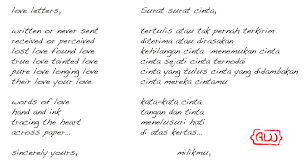 love letters,
written or never sent
received or perceived
lost love found love
true love tainted love
pure love longing love
their love your love
words of love
hand and ink
tracing the heart
across paper...
sincerely yours,
Surat surat cinta,
tertulis atau tak pernah terkirim
diterima atau dirasakan
kehilangan cinta menemukan cinta
cinta sejati cinta ternodai
cinta yang tulus cinta yang didambakan
cinta mereka cintamu
kata-kata cinta
tangan dan tinta
menelusuri hati
di atas kertas...
milikmu,